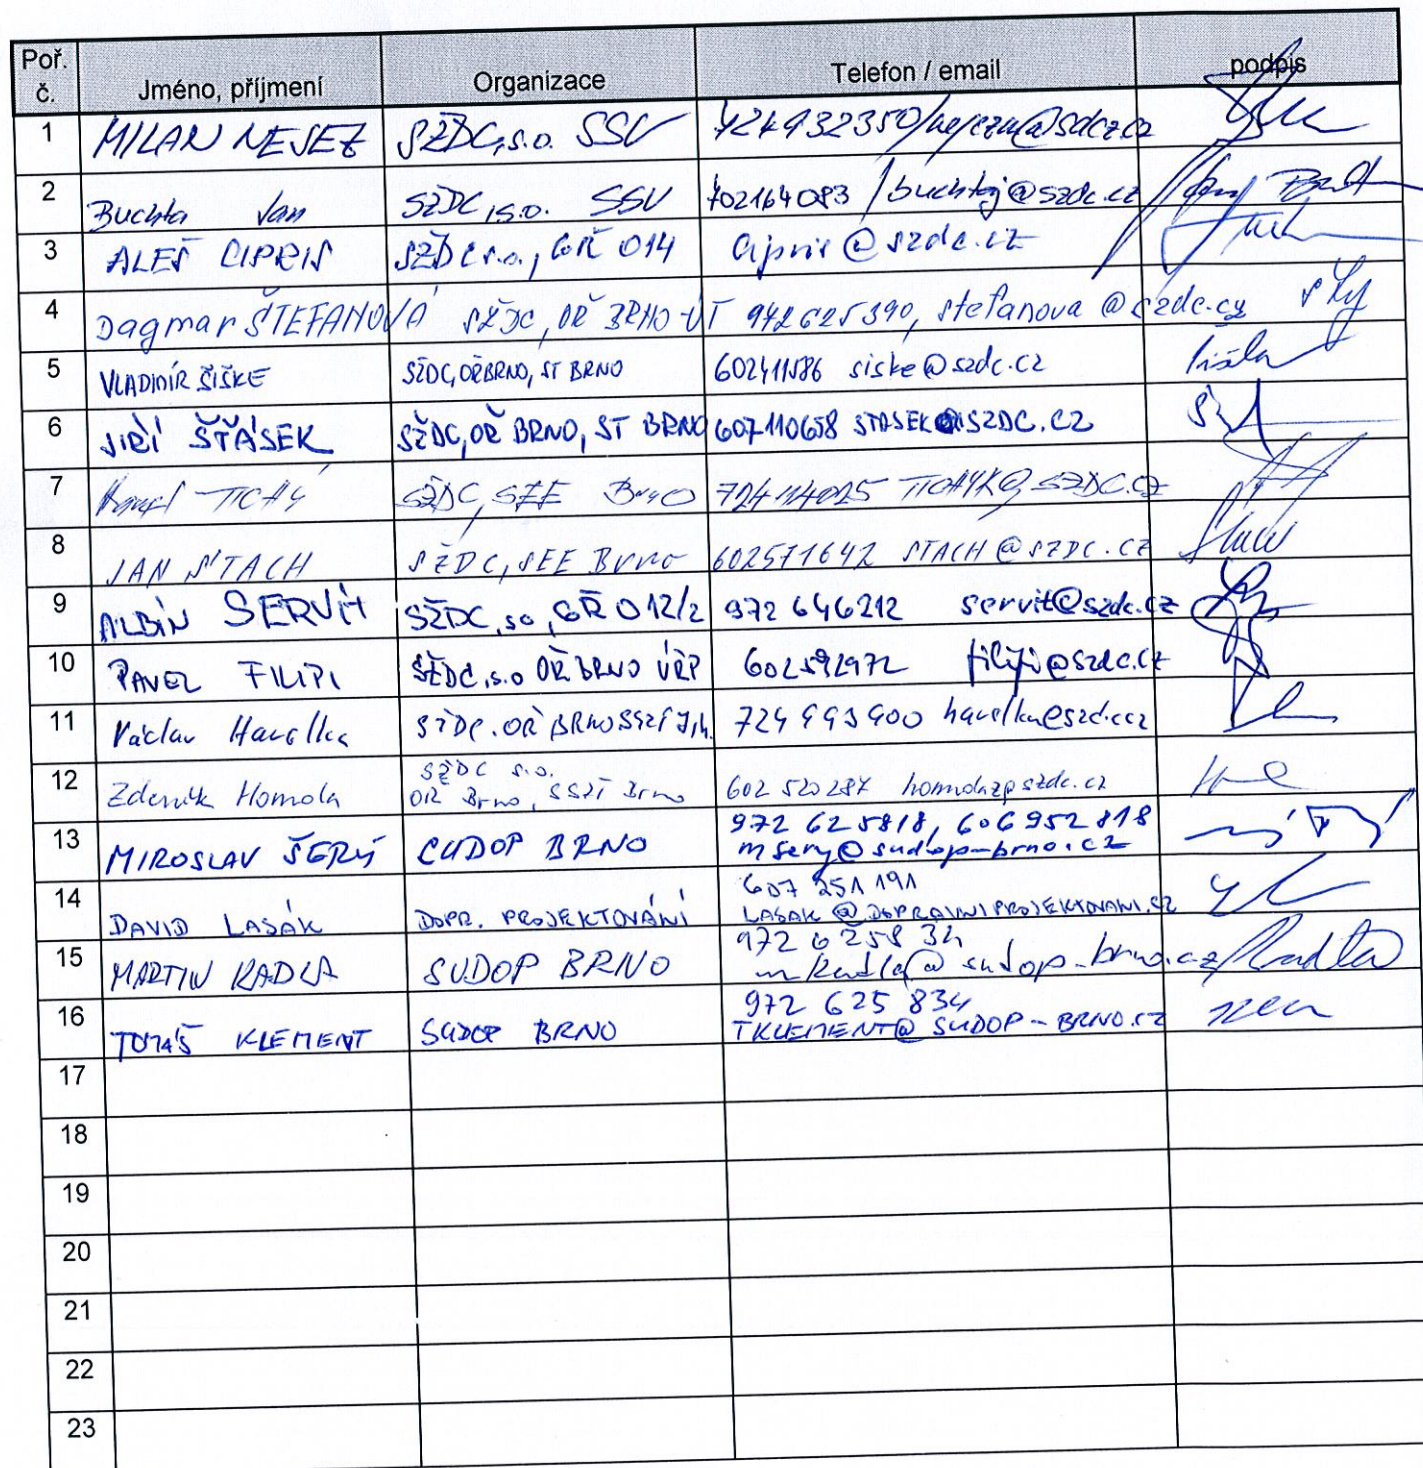 Poř. č. Jméno, příjmení Organizace Telefon / email podpis
1 MILAN NEJEZ SŽDC, s.o. SSV
2 Buchta Jan SŽDC, s.o. SSV 702164083 / buchtaj@szdc.cz
3 ALEŠ CIPRIS SŽDC s.o., GŘ O14 cipris@szdc.cz
4 Dagmar ŠTEFANOVÁ SŽDC, OŘ BRNO-ÚT 972625390, stefanova@szdc.cz
5 VLADIMÍR ŠIŠKE SŽDC, OŘ BRNO, ST BRNO siske@szdc.cz
6 JIŘÍ ŠŤÁSEK SŽDC, OŘ BRNO, ST BRNO 607110658 STASEK@SZDC.CZ
7 TICHÝ SŽDC, SEE Brno
8 JAN STACH SŽDC, SEE Brno 602571642 STACH@SZDC.CZ
9 ALBÍN SERVÍT SŽDC, so, GŘ O12/2 972 646212 servit@szdc.cz
10 PAVEL FILIPI SŽDC, s.o OŘ BRNO ÚŘP 602592972 filipi@szdc.cz
11 Václav Havelka SŽDC. OŘ BRNO
12 Zdeněk Homola
SŽDC s.o.
OŘ Brno, SSZT Brno
602 520287
13 MIROSLAV ŠERÝ SUDOP BRNO
972 625818, 606952818
msery@sudop-brno.cz
14 DAVID LASÁK DOPR. PROJEKTOVÁNÍ
607 251 191
LASAK@DOPRAVNIPROJEKTOVANI.CZ
15 MARTIN KADLA SUDOP BRNO
972 6258 34
mkadla@sudop-brno.cz
16 TOMÁŠ KLEMENT SUDOP BRNO
972 625 834
TKLEMENT@SUDOP-BRNO.CZ
17
18
19
20
21
22
23